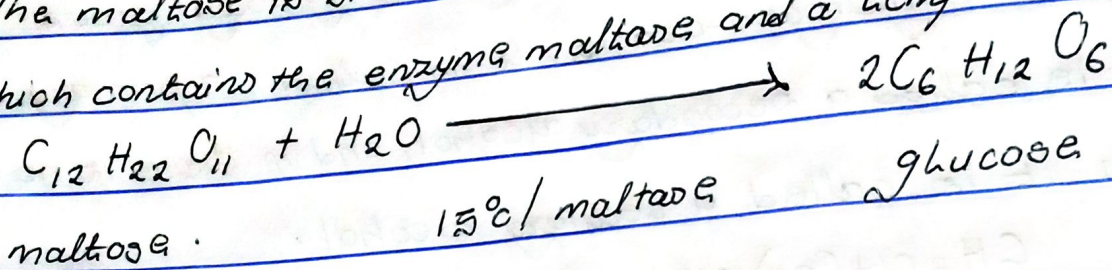 he maltose is
hich contains the enzyme maltase and a
C₁₂ H₂₂ O₁₁ + H₂O ⟶ 2C₆ H₁₂ O₆
maltose. 15°c/ maltase glucose